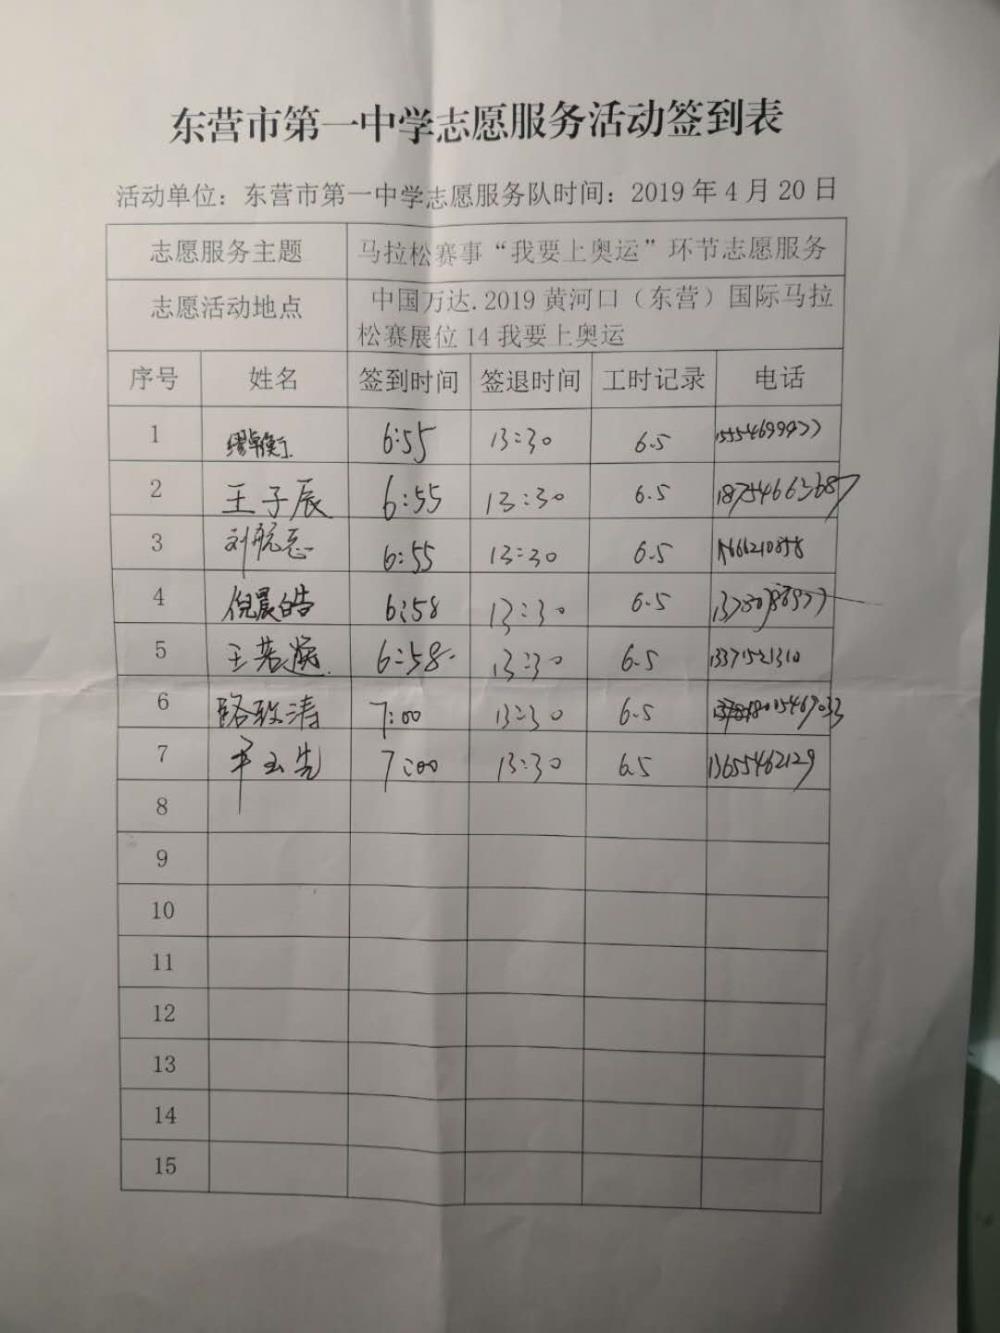 东营市第一中学志愿服务活动签到表
活动单位：东营市第一中学志愿服务队时间：2019 年 4 月 20 日
志愿服务主题 马拉松赛事“我要上奥运”环节志愿服务
志愿活动地点 中国万达.2019 黄河口（东营）国际马拉
松赛展位 14 我要上奥运
序号 姓名 签到时间 签退时间 工时记录 电话
1 6:55 13:30 6.5
2 王子辰 6:55 13:30 6.5 18754663687
3 刘航志 6:55 13:30 6.5
4 倪晨皓 6:58 13:30 6.5
5 王若 6:58 13:30 6.5 13371521310
6 骆致涛 7:00 13:30 6.5
7 7:00 13:30 6.5 13655462129
8
9
10
11
12
13
14
15